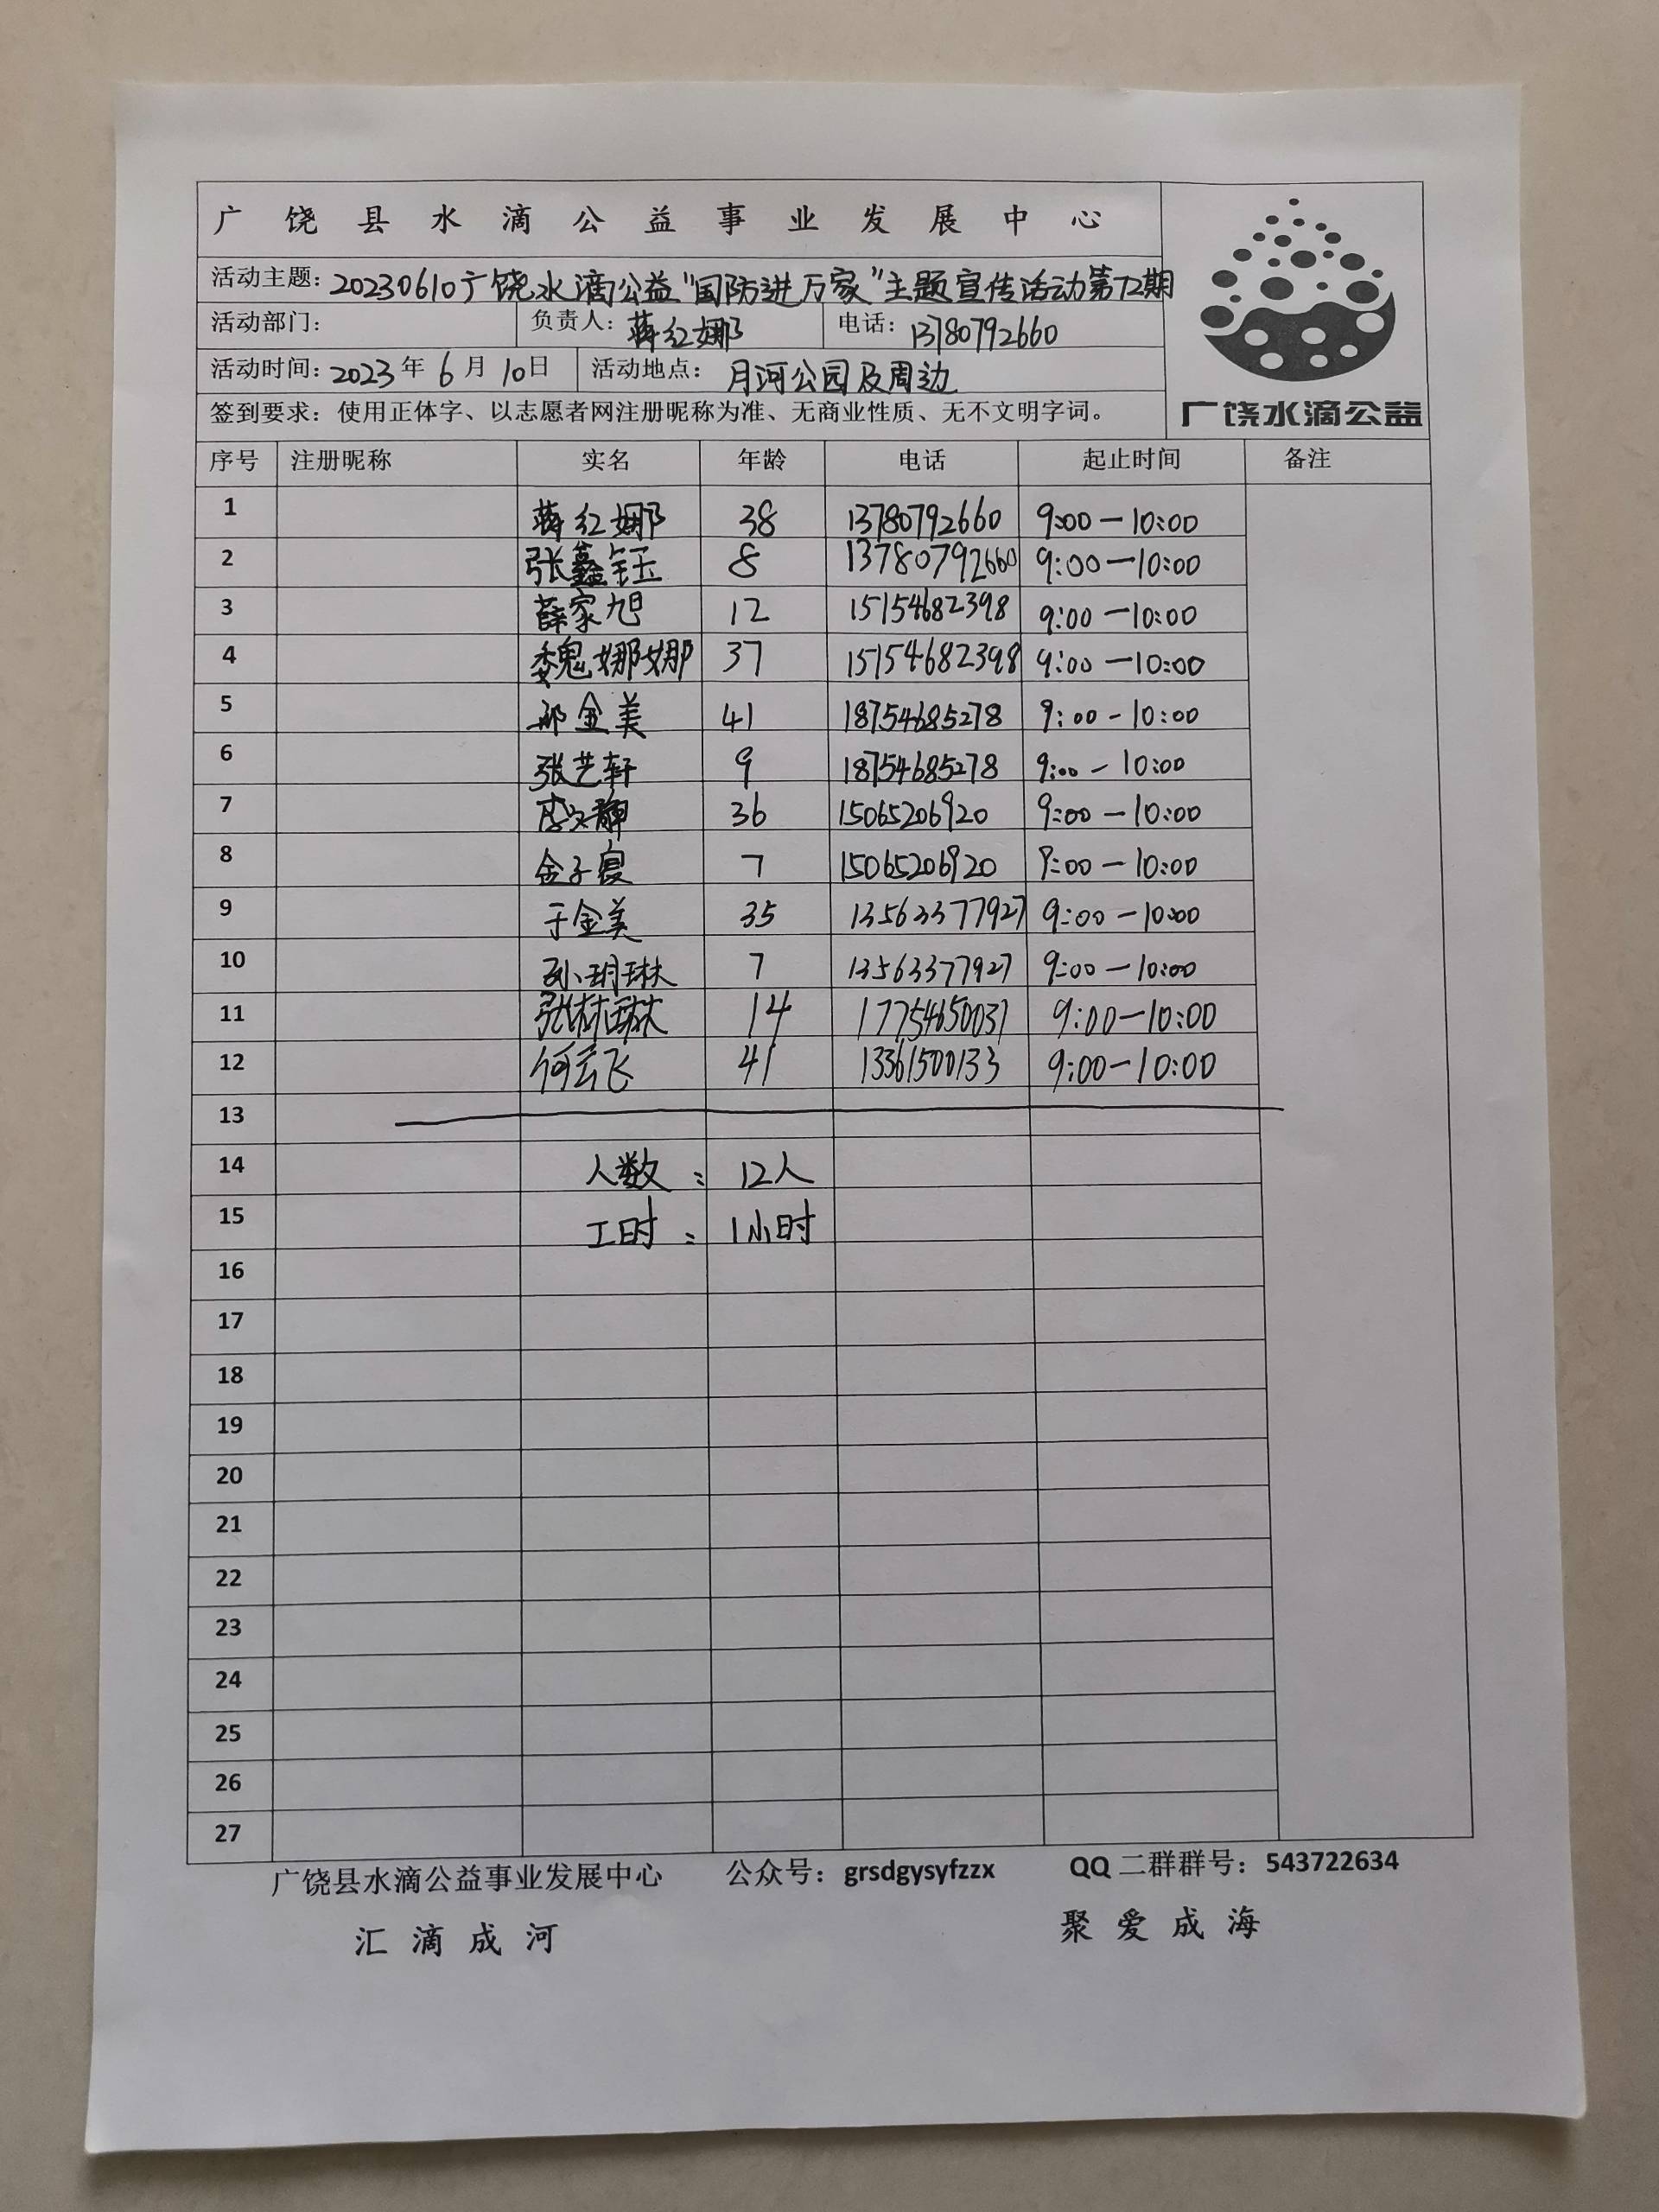 广饶县水滴公益事业发展中心
活动主题：20230610广饶水滴公益“国防进万家”主题宣传活动第72期
活动部门： 负责人：蒋红娜 电话：13780792660
活动时间：2023年6月10日 活动地点：月河公园及周边
签到要求：使用正体字、以志愿者网注册昵称为准、无商业性质、无不文明字词。
广饶水滴公益
序号 注册昵称 实名 年龄 电话 起止时间 备注
1 蒋红娜 38 13780792660 9:00—10:00
2 张鑫钰 8 13780792660 9:00—10:00
3 薛家旭 12 15154682398 9:00—10:00
4 魏娜娜 37 15154682398 9:00—10:00
5 金美 41 18754685278 9:00-10:00
6 张艺轩 9 18754685278 9:00-10:00
7 李文静 36 15065206920 9:00—10:00
8 金子 7 15065206920 9:00—10:00
9 于金美 35 13563377927 9:00—10:00
10 孙玥琳 7 13563377927 9:00—10:00
11 张琳 14 17754650037 9:00—10:00
12 何云飞 41 13361500133 9:00—10:00
13
14 人数：12人
15 工时：1小时
16
17
18
19
20
21
22
23
24
25
26
27
广饶县水滴公益事业发展中心 公众号：grsdgysyfzzx QQ二群群号：543722634
汇滴成河 聚爱成海